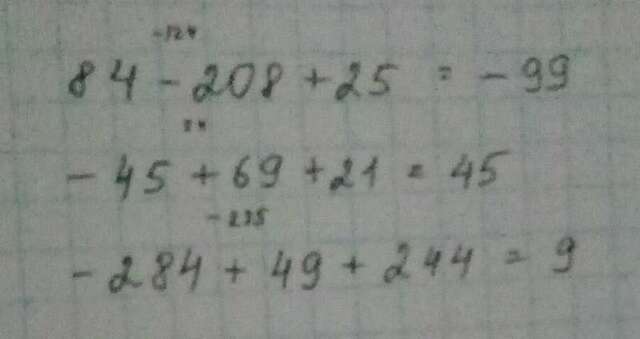 -124
84 - 208 + 25 = - 99
24
- 45 + 69 + 21 = 45
- 235
- 284 + 49 + 244 = 9